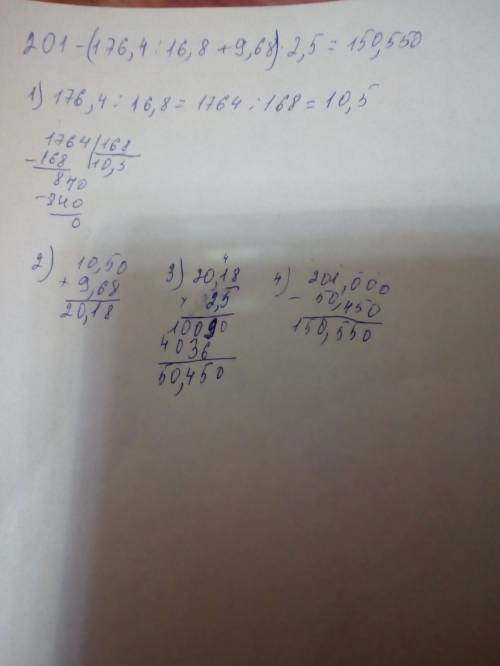 201-(176,4:16,8+9,68)·2,5=150,550
1) 176,4:16,8=1764:168=10,5
1764|168
-168 10,5
840
-840
0
2) 10,50
+ 9,68
20,18
3) 20,18
2,5
10090
4036
50,450
4) 201,000
- 50,450
150,550